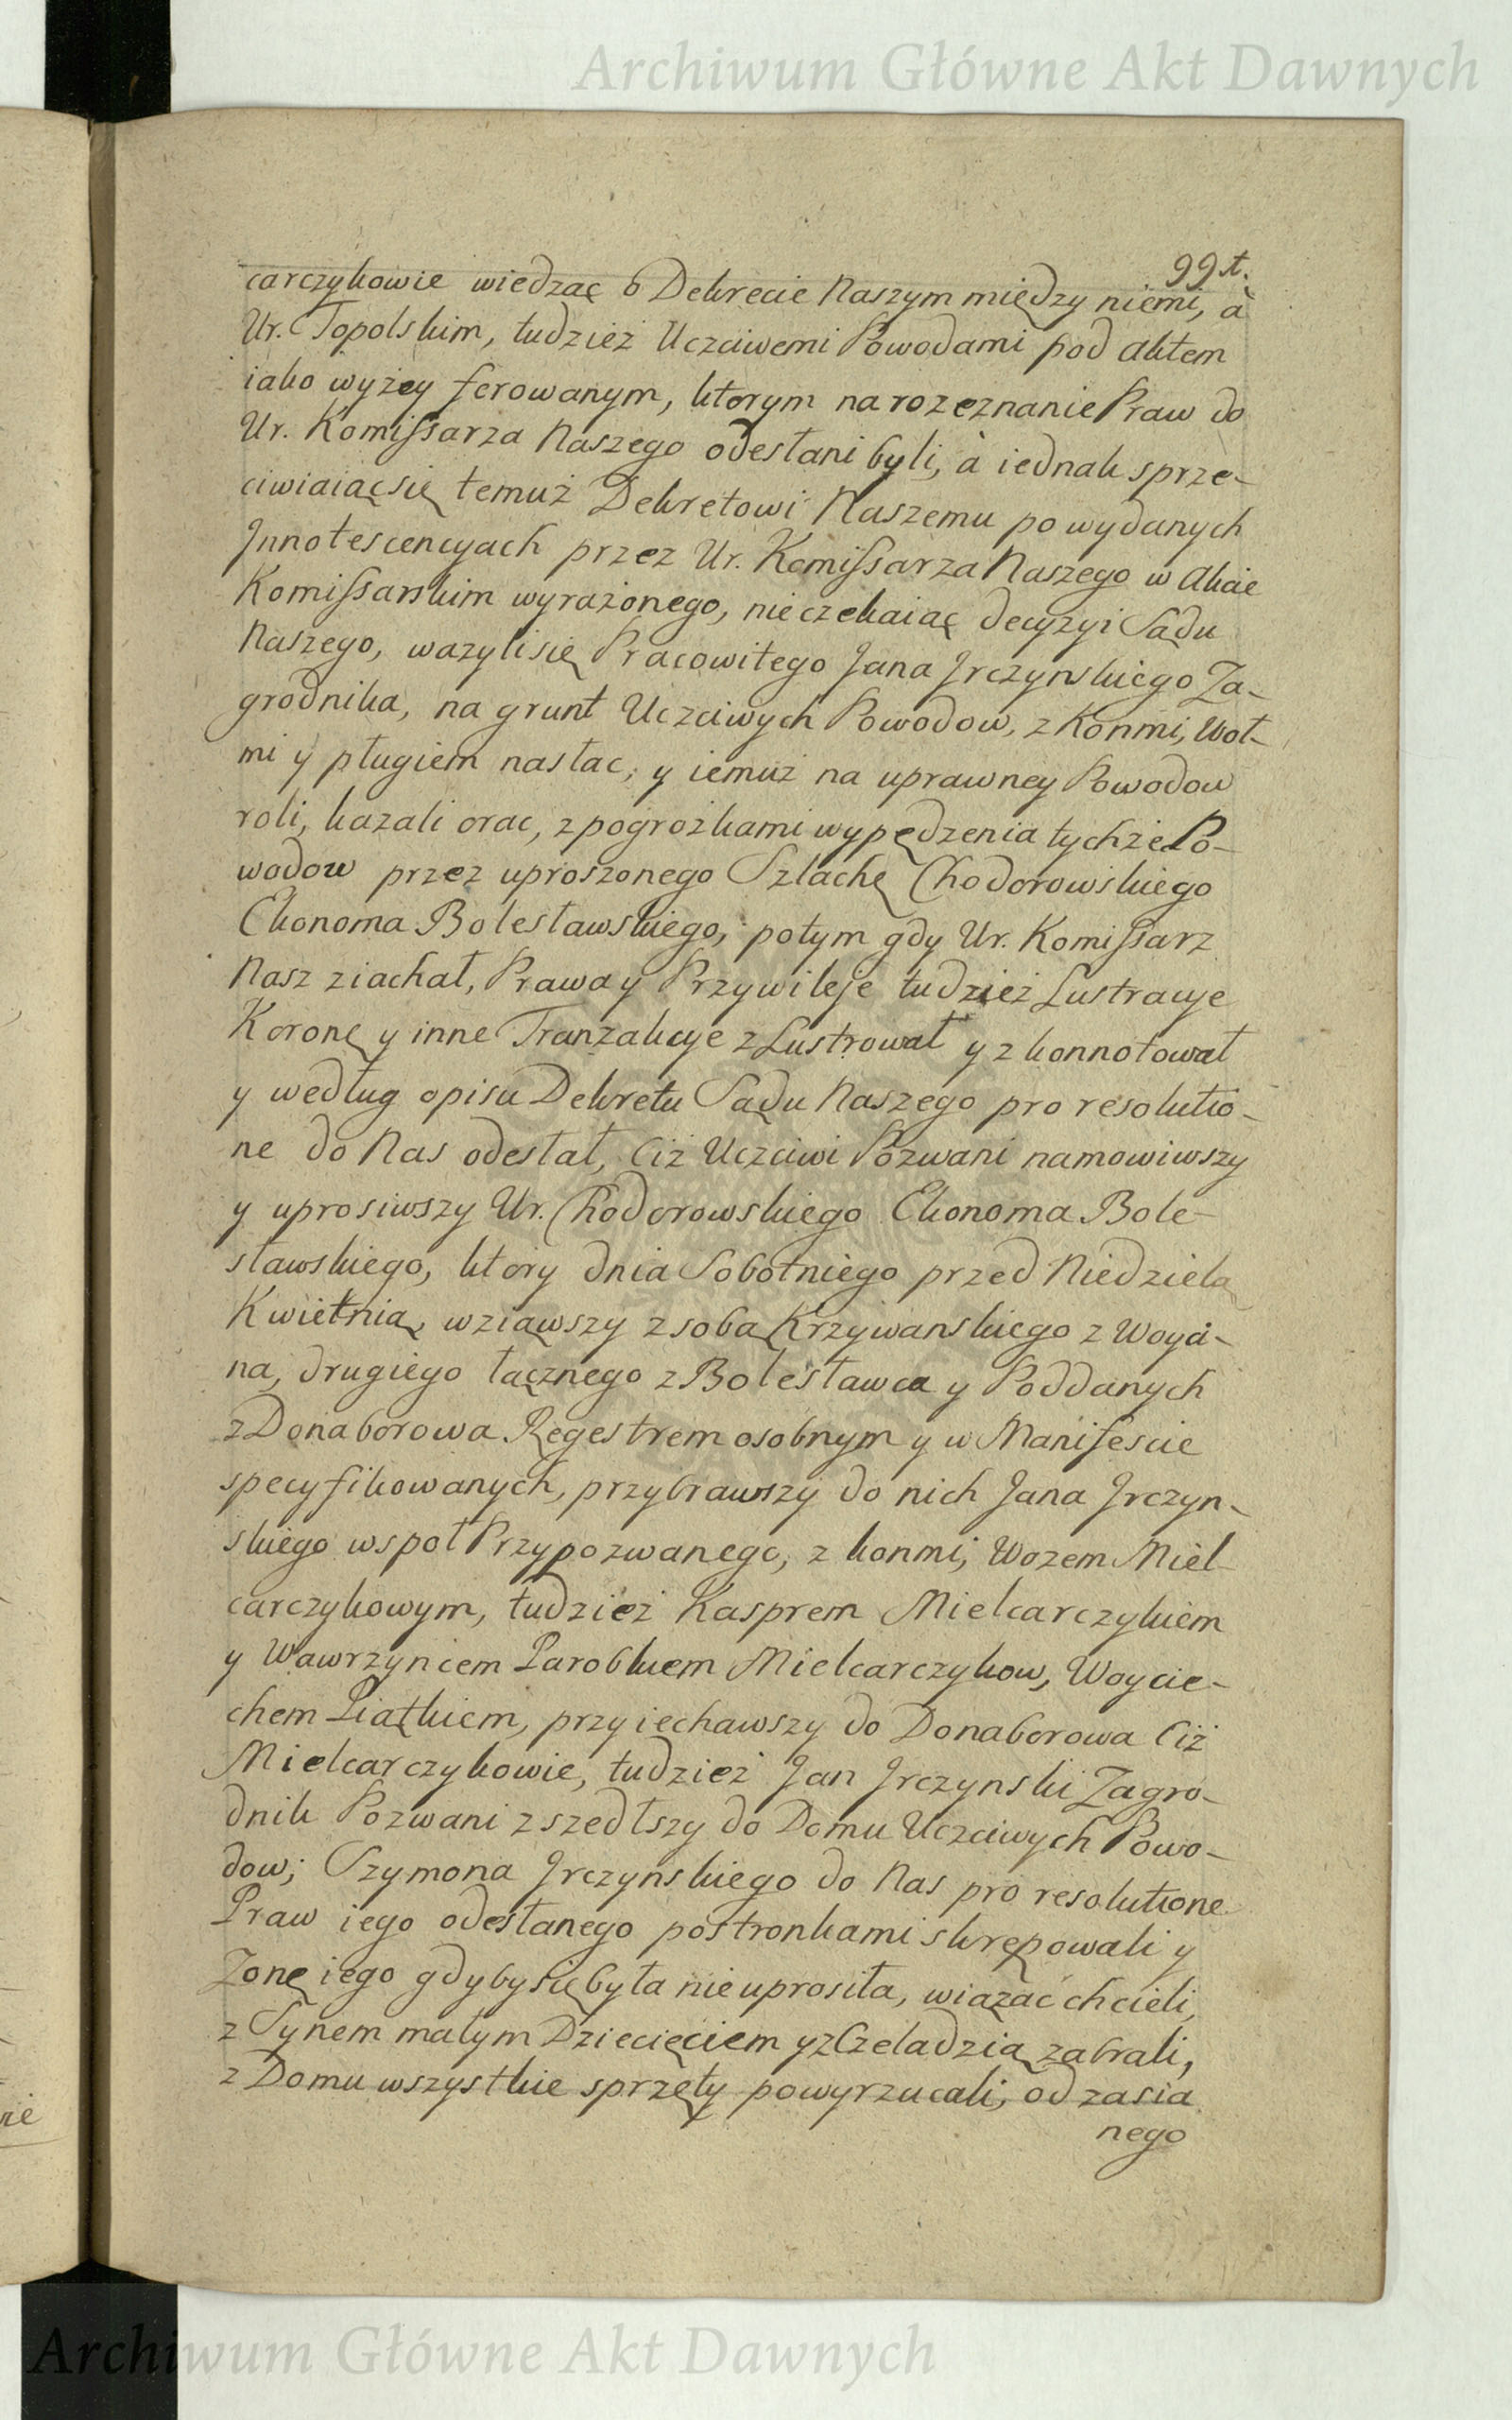 Archiwum Główne Akt Dawnych
99t.
carczykowie wiedząc o Dekrecie Naszym między niemi, à
Ur. Topolskim, tudzież Uczciwemi Powodami pod aktem
iako wyżey ferowanym, ktorym na rozeznanie Praw do
Ur. Komissarza Naszego odesłani byli, à iednak sprze-
ciwiaiąc się temuż Dekretowi Naszemu po wydanych
Innotescencyach przez Ur. Komissarza Naszego w akcie
Komissarskim wyrażonego, nie czekaiąc decyzyi Sądu
Naszego, ważyli się Pracowitego Jana Jrczynskiego Za-
grodnika, na grunt Uczciwych Powodow, z Konmi, Woł-
mi y pługiem nasłac, y iemuż na uprawney Powodow
roli, kazali orac, z pogrożkami wypędzenia tychże Po-
wodow przez uproszonego Szlachę Chodorowskiego
Ekonoma Bolesławskiego, potym gdy Ur. Komissarz
Nasz ziachał, Prawa y Przywileje tudzież Lustracye
Koronę y inne Tranzakcye z Lustrował y zkonnotował
y według opisu Dekretu Sądu Naszego pro resolutio-
ne do Nas odesłał, Ciż Uczciwi Pozwani namowiwszy
y uprosiwszy Ur. Chodorowskiego Ekonoma Bole-
sławskiego, ktory dnia Sobotniego przed Niedzielą
Kwietnią, wziąwszy z sobą Krzywanskiego z Woyci-
na, drugiego łącznego z Bolesławca y Poddanych
z Donaborowa Regestrem osobnym y w Manifescie
specyfikowanych, przybrawszy do nich Jana Jrczyn-
skiego wspoł Przypozwanego, z konmi, Wozem Miel-
carczykowym, tudzież Kasprem Mielcarczykiem
y Wawrzyncem Parobkiem Mielcarczykow, Woycie-
chem Piątkiem, przyiechawszy do Donaborowa Ciż
Mielcarczykowie, tudzież Jan Jrczynski Zagro-
dnik Pozwani zszedłszy do Domu Uczciwych Powo-
dow; Szymona Jrczynskiego do Nas pro resolutione
Praw iego odesłanego postronkami skrępowali y
Zonę iego gdyby się była nie uprosiła, wiązać chcieli,
z Synem małym Dziecięciem y z Czeladzią zabrali,
z Domu wszystkie sprzęty powyrzucali, od zasia
nego
Archiwum Główne Akt Dawnych